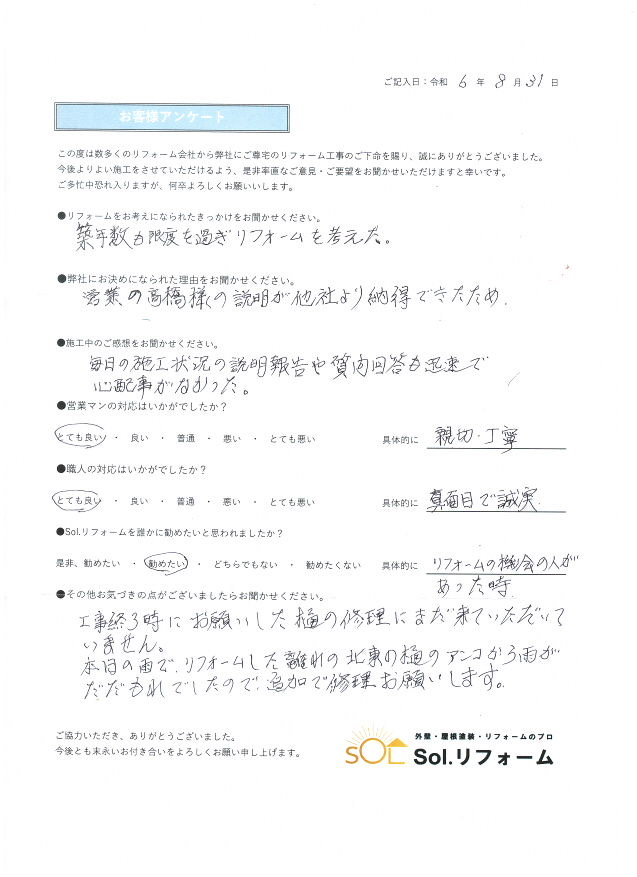 ご記入日：令和 6 年 8 月 31 日
お客様アンケート
この度は数多くのリフォーム会社から弊社にご尊宅のリフォーム工事のご下命を賜り、誠にありがとうございました。
今後よりよい施工をさせていただけるよう、是非率直なご意見・ご要望をお聞かせいただけますと幸いです。
ご多忙中恐れ入りますが、何卒よろしくお願いいします。
●リフォームをお考えになられたきっかけをお聞かせください。
築年数も限度を過ぎリフォームを考えた。
●弊社にお決めになられた理由をお聞かせください。
営業の高橋様の説明が他社より納得できたため.
●施工中のご感想をお聞かせください。
毎日の施工状況の説明報告や質問回答も迅速で
心配事がなかった。
●営業マンの対応はいかがでしたか？
とても良い ・ 良い ・ 普通 ・ 悪い ・ とても悪い 具体的に 親切・丁寧
●職人の対応はいかがでしたか？
とても良い ・ 良い ・ 普通 ・ 悪い ・ とても悪い 具体的に 真面目で誠実.
●Sol.リフォームを誰かに勧めたいと思われましたか？
是非、勧めたい ・ 勧めたい ・ どちらでもない ・ 勧めたくない 具体的に リフォームの機会の人が
あった時.
●その他お気づきの点がございましたらお聞かせください。
工事終了時にお願いした樋の修理にまだ来ていただいて
いません。
本日の雨で、リフォームした離れの北東の樋のアンコから雨が
だだもれでしたので、追加で修理お願いします。
ご協力いただき、ありがとうございました。
今後とも末永いお付き合いをよろしくお願い申し上げます。
外壁・屋根塗装・リフォームのプロ
SOL Sol.リフォーム